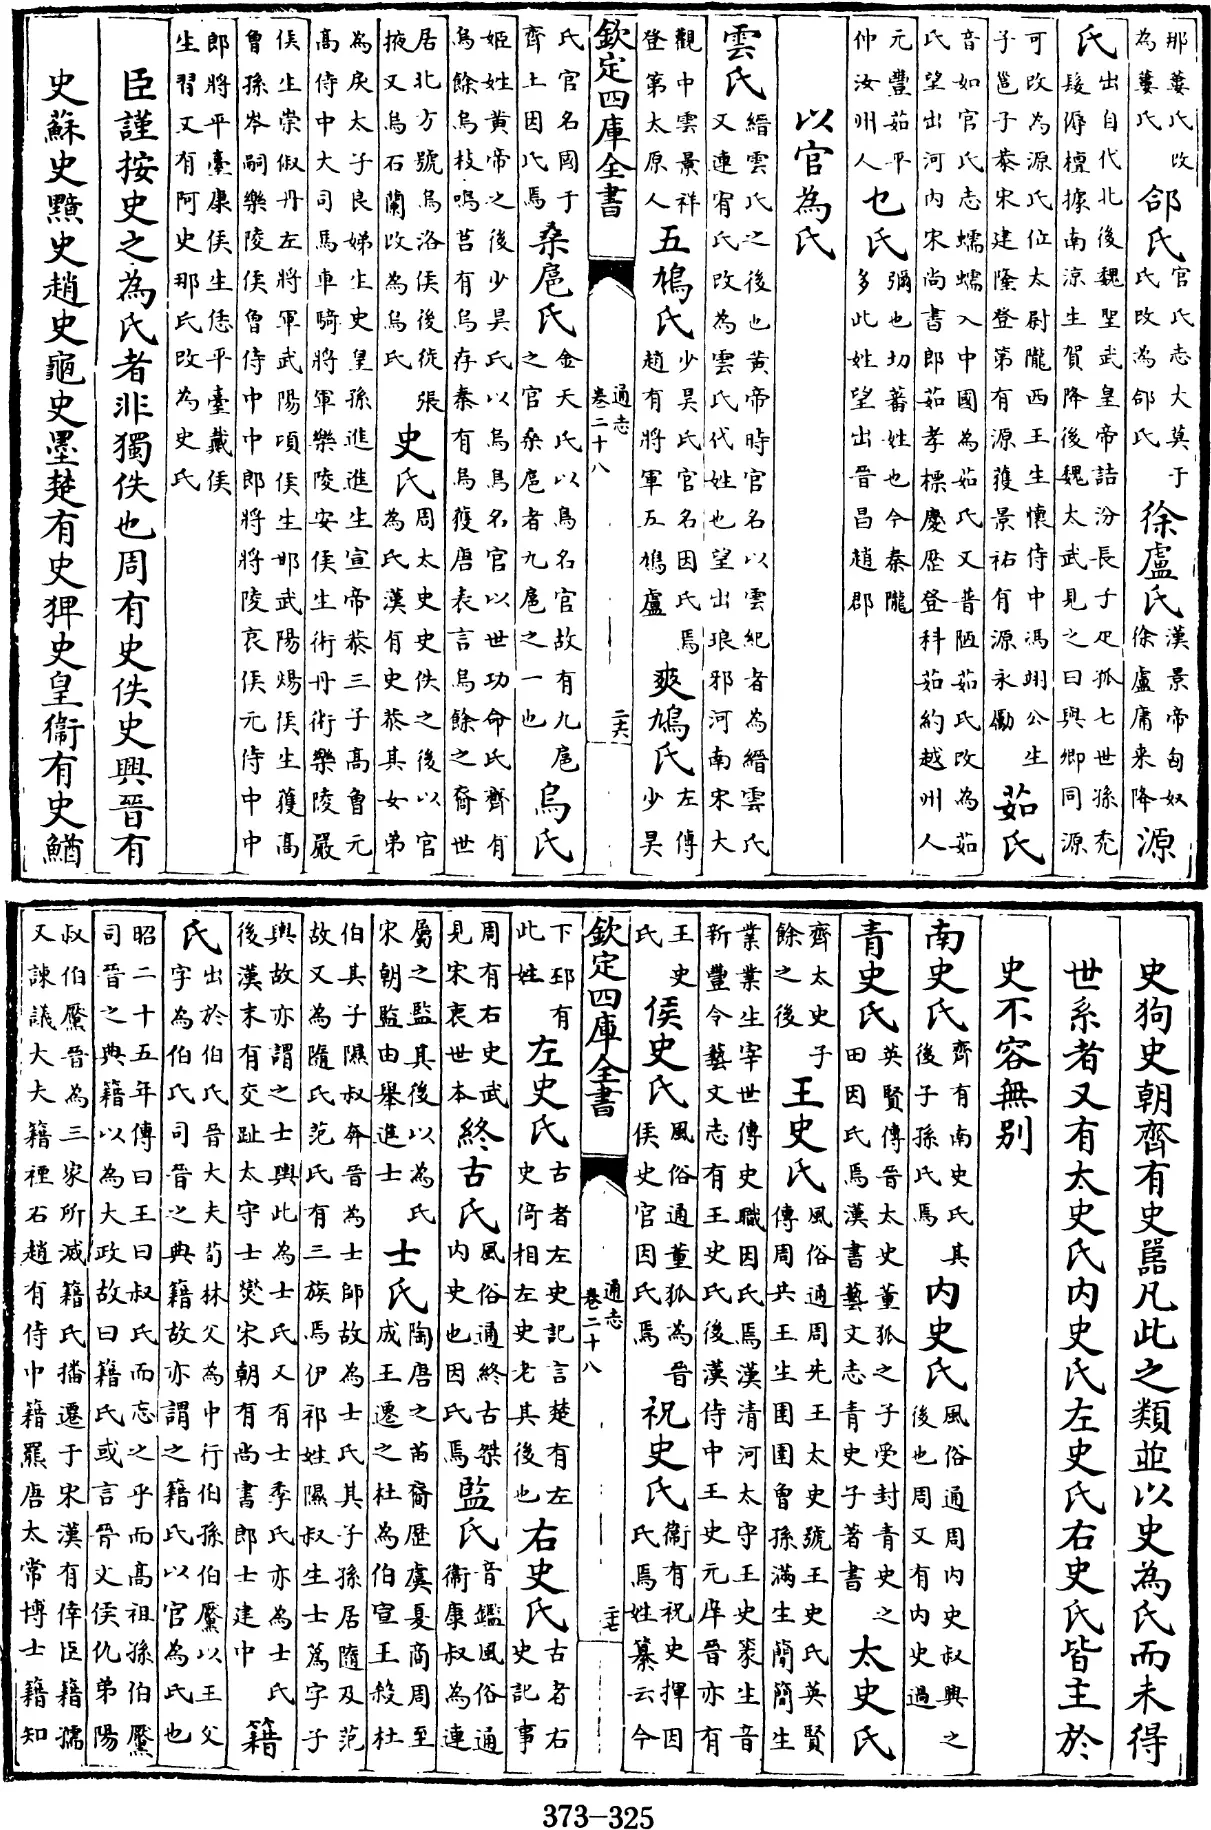 那蔞氏改
為蔞氏
郃氏
官氏志大莫于
氏改為郃氏
徐盧氏
漢景帝匈奴
徐盧庸来降
源
氏
出自代北後魏聖武皇帝詰汾長子疋孤七世孫禿
髮傉檀據南涼生賀降後魏太武見之曰與卿同源
可改為源氏位太尉隴西王生懷侍中馮翊公生
子邕子恭宋建隆登第有源護景祐有源永勵
茹氏
音如官氏志蠕蠕入中國為茹氏又普陋茹氏改為茹
氏望出河内宋尚書郎茹孝標慶歴登科茹約越州人
元豐茹平
仲汝州人
乜氏
彌也切蕃姓也今秦隴
多此姓望出晉昌趙郡
以官為氏
雲氏
縉雲氏之後也黄帝時官名以雲紀者為縉雲氏
又連宥氏改為雲氏代姓也望出琅邪河南宋大
觀中雲景祥
登第太原人
五鳩氏
少昊氏官名因氏焉
趙有將軍五鳩盧
爽鳩氏
左傳
少昊
欽定四庫全書
通志
卷二十八
二十六
氏官名國于
齊土因氏焉
桑扈氏
金天氏以鳥名官故有九扈
之官桑扈者九扈之一也
烏氏
姬姓黄帝之後少昊氏以烏鳥名官以世功命氏齊有
烏餘烏枝鳴莒有烏存秦有烏獲唐表言烏餘之裔世
居北方號烏洛侯後徙張
掖又烏石蘭改為烏氏
史氏
周太史史佚之後以官
為氏漢有史恭其女弟
為戾太子良娣生史皇孫進進生宣帝恭三子高魯元
高侍中大司馬車騎將軍樂陵安侯生術丹術樂陵嚴
侯生崇俶丹左將軍武陽頃侯生邯武陽煬侯生獲高
曾孫岑嗣樂陵侯魯侍中中郎將將陵哀侯元侍中中
郎將平臺康侯生恁平臺戴侯
生習又有阿史那氏改為史氏
臣謹按史之為氏者非獨佚也周有史佚史興晉有
史蘇史黶史趙史龜史墨楚有史猈史皇衞有史鰌
史狗史朝齊有史嚚凡此之類並以史為氏而未得
世系者又有太史氏内史氏左史氏右史氏皆主於
史不容無别
南史氏
齊有南史氏其
後子孫氏焉
内史氏
風俗通周内史叔興之
後也周又有内史過
青史氏
英賢傳晉太史董狐之子受封青史之
田因氏焉漢書藝文志青史子著書
太史氏
齊太史子
餘之後
王史氏
風俗通周先王太史號王史氏英賢
傳周共王生圉圉曾孫滿生簡簡生
業業生宰世傳史職因氏焉漢清河太守王史篆生音
新豐令藝文志有王史氏後漢侍中王史元庠晉亦有
王史
氏
侯史氏
風俗通董狐為晉
侯史官因氏焉
祝史氏
衞有祝史揮因
氏焉姓纂云今
欽定四庫全書
通志
卷二十八
二十七
下邳有
此姓
左史氏
古者左史記言楚有左
史倚相左史老其後也
右史氏
古者右
史記事
周有右史武
見宋衷世本
終古氏
風俗通終古桀
内史也因氏焉
監氏
音鑑風俗通
衞康叔為連
屬之監其後以為氏
宋朝監由舉進士
士氏
陶唐之苗裔歴虞夏商周至
成王遷之杜為伯宣王殺杜
伯其子隰叔奔晉為士師故為士氏其子孫居隨及范
故又為隨氏范氏有三族焉伊祁姓隰叔生士蒍字子
輿故亦謂之士輿此為士氏又有士季氏亦為士氏
後漢末有交趾太守士燮宋朝有尚書郎士建中
籍
氏
出於伯氏晉大夫荀林父為中行伯孫伯黶以王父
字為伯氏司晉之典籍故亦謂之籍氏以官為氏也
昭二十五年傳曰王曰叔氏而忘之乎而高祖孫伯黶
司晉之典籍以為大政故曰籍氏或言晉文侯仇弟陽
叔伯黶晉為三家所滅籍氏播遷于宋漢有倖臣籍孺
又諫議大夫籍種石趙有侍中籍羆唐太常博士籍知
373-325